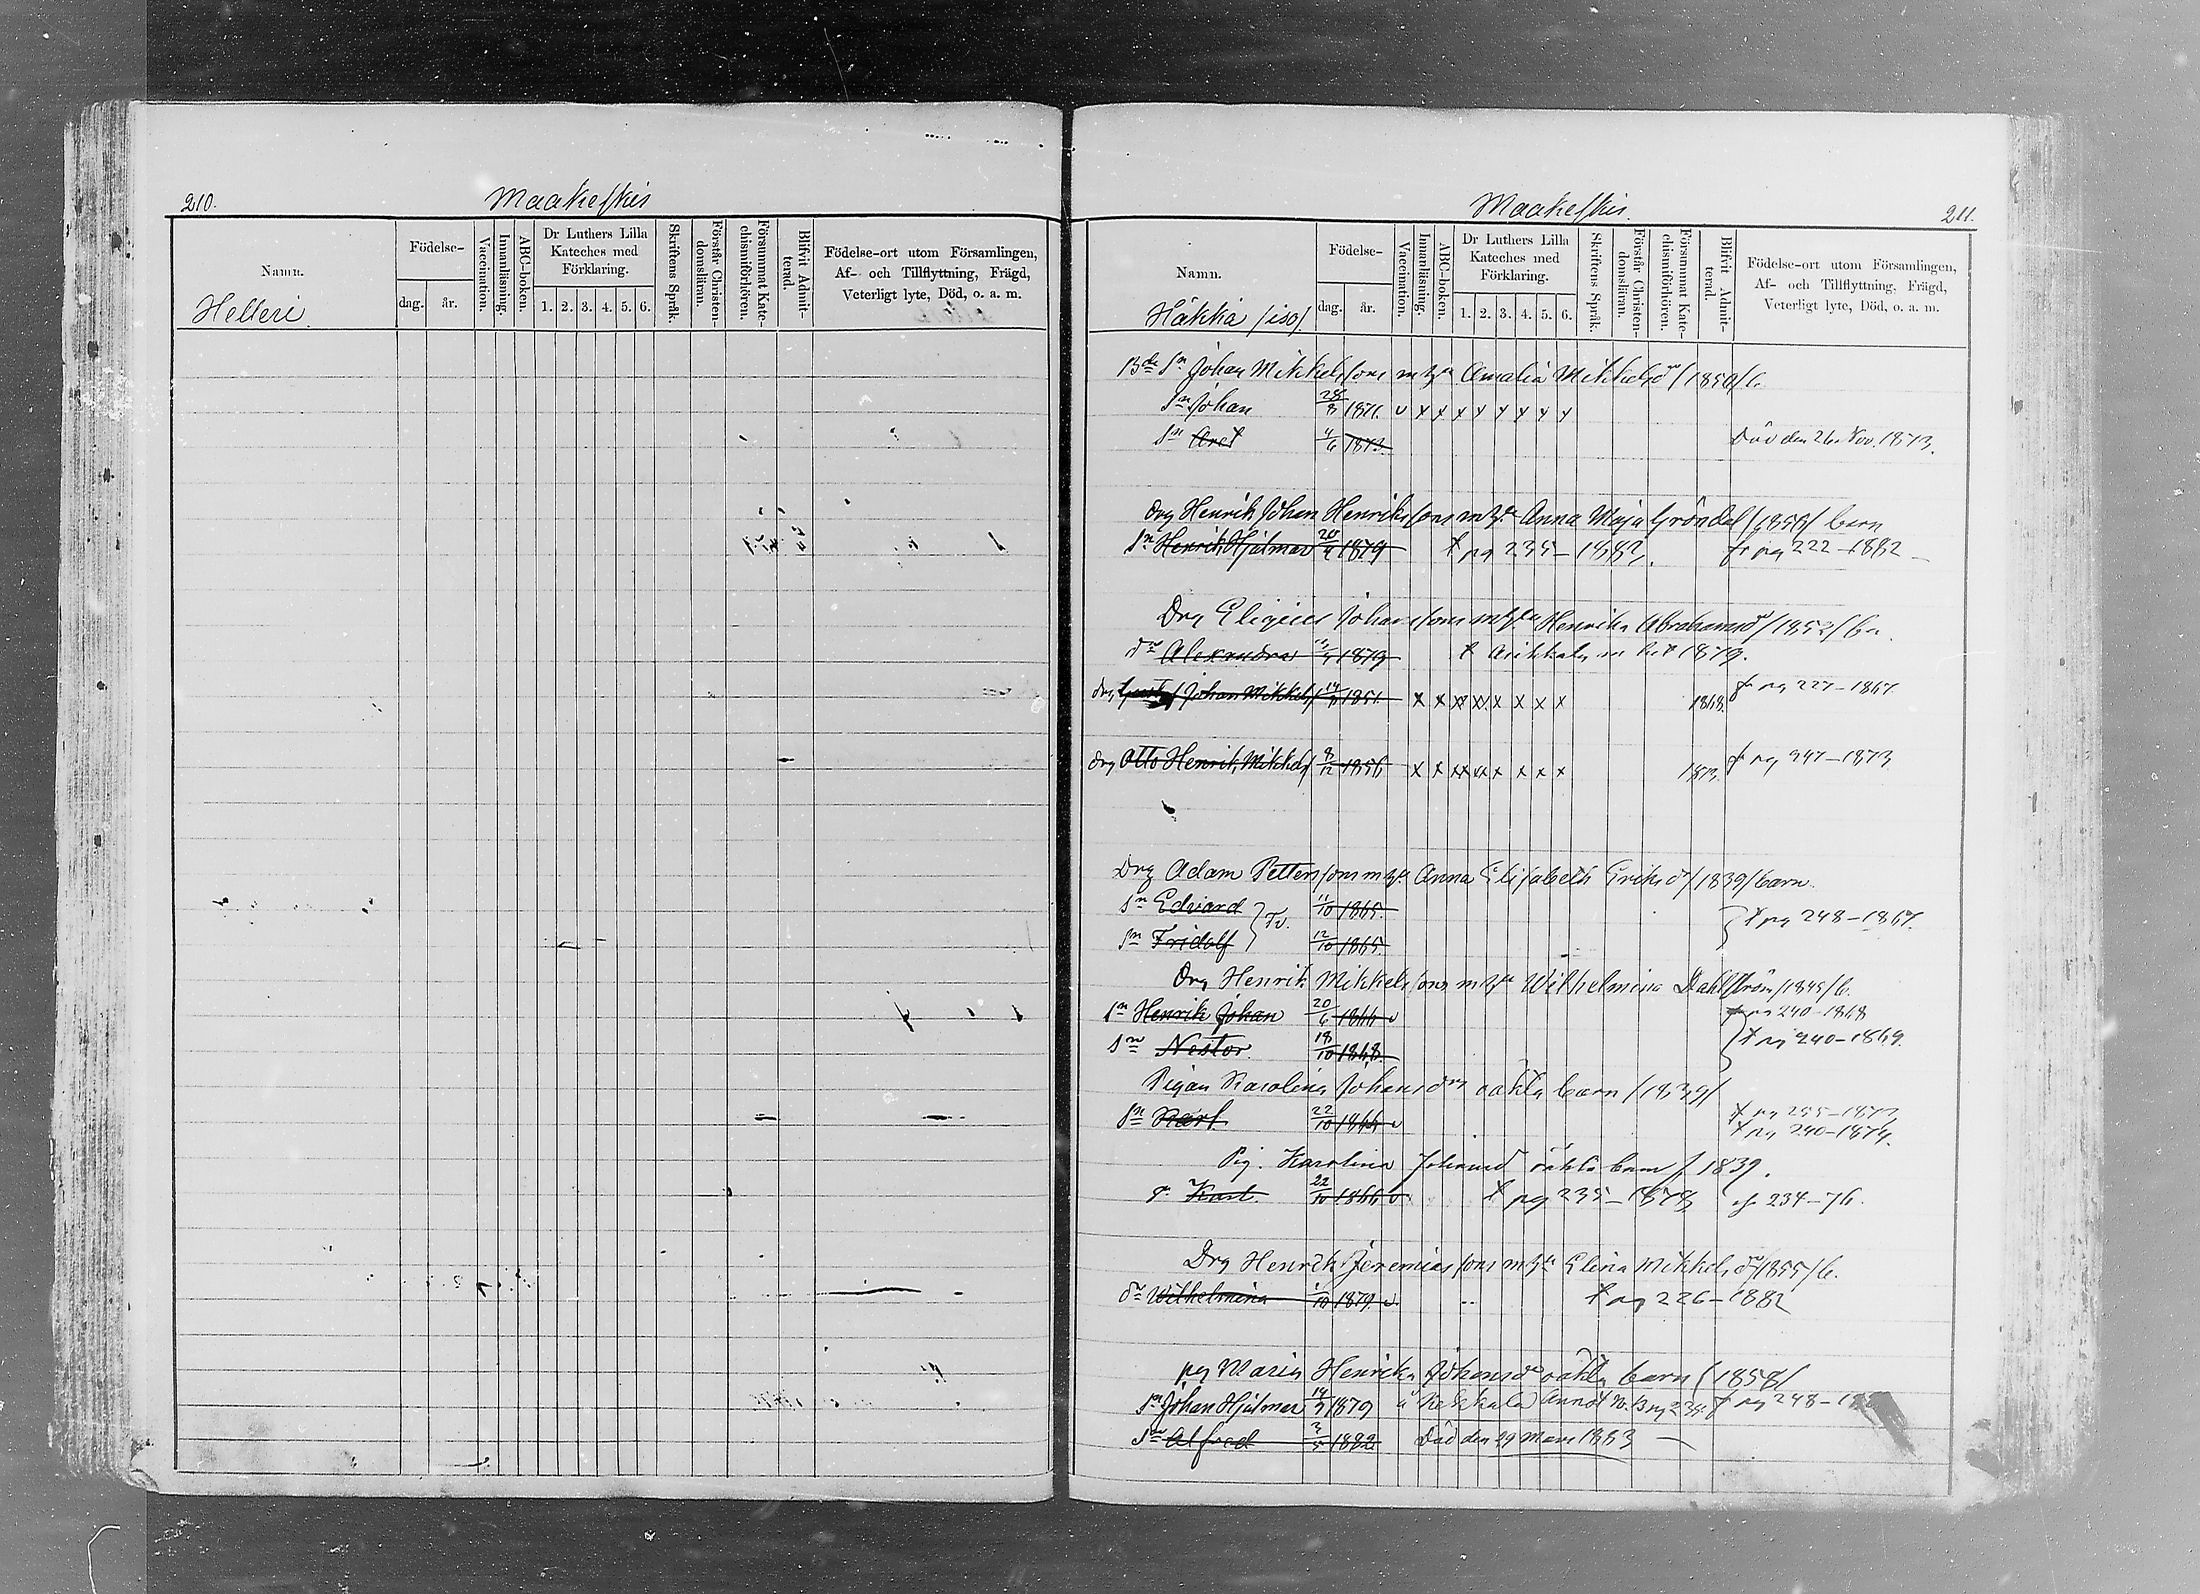 210.
Maakeskis
Namn.
Födelse-
dag. år.
Vaccination.
Innanläsning.
ABC-boken.
Dr Luthers Lilla Kateches med Förklaring.
1. 2. 3. 4. 5. 6.
Skriftens Språk.
Förstår Christen-domsläran.
Försummat Kate-chismiförhören.
Blifvit Admit-terad.
Födelse-ort utom Församlingen,
Af- och Tillflyttning, Frägd,
Veterligt lyte, Död, o. a. m.
Helleri.
Maakeskis.
211.
Namn.
Födelse-
dag. år.
Vaccination.
Innanläsning.
ABC-boken.
Dr Luthers Lilla Kateches med Förklaring.
1. 2. 3. 4. 5. 6.
Skriftens Språk.
Förstår Christen-domsläran.
Försummat Kate-chismiförhören.
Blifvit Admit-terad.
Födelse-ort utom Församlingen,
Af- och Tillflyttning, Frägd,
Veterligt lyte, Död, o. a. m.
Häkkä /iso/
Bde Sn Johan Mikkelssons m hu Amalia Mikkelsdr /1850/ b.
Sn Johan 28/8 1871. v x x x x x x x x
Sn Axel 4/6 1873. Död den 26 Nov. 1873.
Drg Henrik Johan Henrikssons m hu Anna Maja Gröndal /1856/ barn
Sn Henrik Hjalmar 20/4 1879 t pg 235-1882. fr pg 222-1882
Drg Eligius Johanssons m hu Henrika Abrahamsdr /1852/ ba.
dr Alexandra 1879 t Asikkala m bet 1879.
drg Gustaf Johan Mikkelss 14/8 1851. x x xx xx x x x x 1868. fr pg 227-1867
drg Otto Henrik Mikkelss 8/12 1856 x x xx xx x x x x 1873. t pg 247-1873
Drg Adam Petterssons m hu Anna Elisabeth Eriksdr /1839/ barn.
Sn Edvard } Tv. 11/10 1865. } t pg 248-1867.
Sn Fridolf 12/10 1865.
Drg Henrik Mikkelssons m hu Wilhelmina Dahlström /1845/ b.
Sn Henrik Johan 20/6 1866 v fr pg 240-1868
Sn Nestor. 18/10 1868. } t pg 240-1869.
Pigan Karolina Johansdrs oäkta barn /1839/
Sn Karl 22/10 1866 v t pg 255-1873
t pg 240-1874.
Pig. Karolina Johansd oäkta barn f 1839.
s. Karl. 22/10 1866 v. t pg 235-1878 af 234-76.
Drg Henrik Jeremiassons m hu Elina Mikkelsdr /1855/ b.
dr Wilhelmina 1/10 1879 v. t pg 226-1882
pg Maria Henrika Johansdr oäkta barn /1858/
Sn Johan Hjalmar 14/7 1879 fr pg 248-
Sn Alfred 3/5 1882 Död den 29 Mars 1883